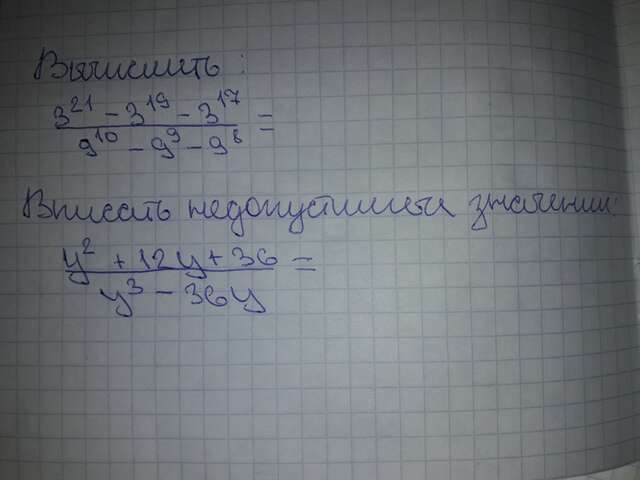 Вычислить:
3^21 - 3^19 - 3^17 / 9^10 - 9^9 - 9^8 =
Вписать недопустимые значения:
y^2 + 12y + 36 / y^3 - 36y =